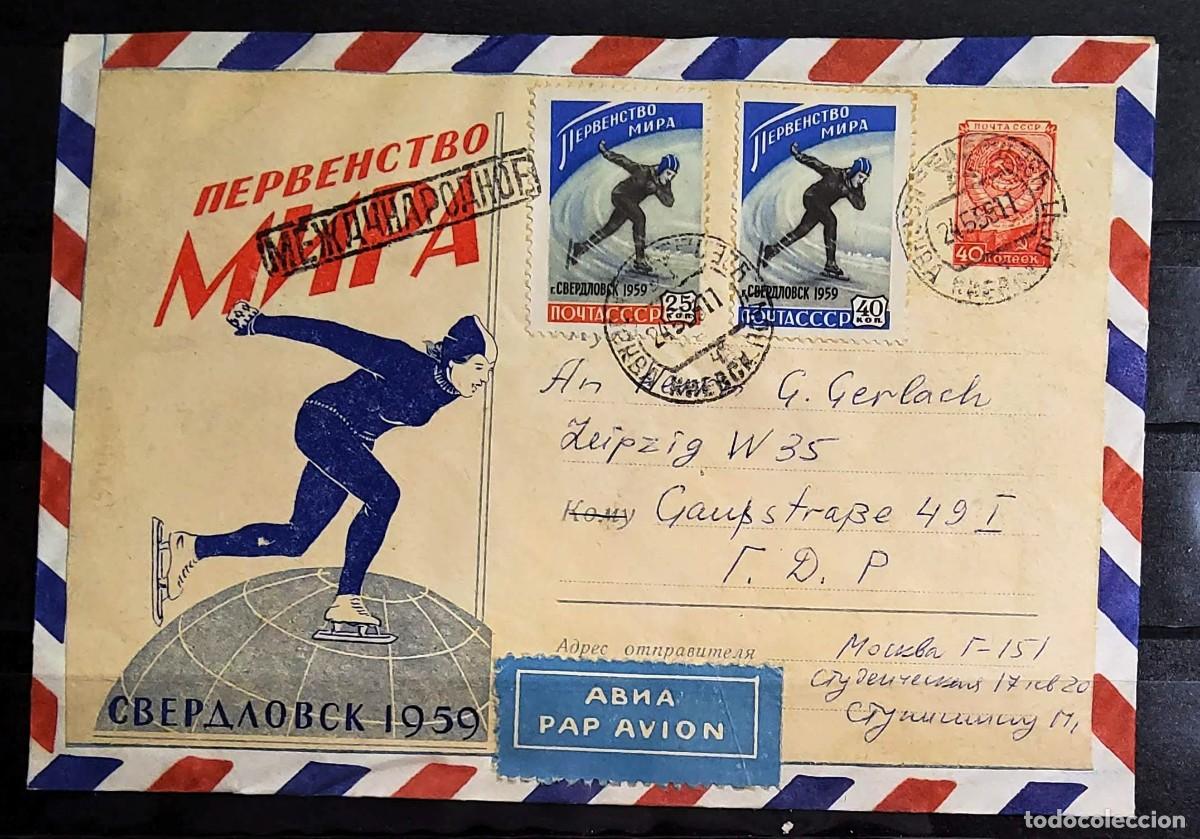 ПЕРВЕНСТВО
МИРА
МЕЖДУНАРОДНОЕ
ПЕРВЕНСТВО
МИРА
г. СВЕРДЛОВСК 1959
ПОЧТА СССР 25 КОП.
ПЕРВЕНСТВО
МИРА
г. СВЕРДЛОВСК 1959
ПОЧТА СССР 40 КОП.
ПОЧТА СССР
40 КОПЕЕК
An G. Gerlach
Leipzig W 35
Кому Gaußstraße 49 I
Г. D. P
Адрес отправителя
Москва Г-151
Студенческая 17 кв 20
АВИА
PAR AVION
СВЕРДЛОВСК 1959
todocoleccion